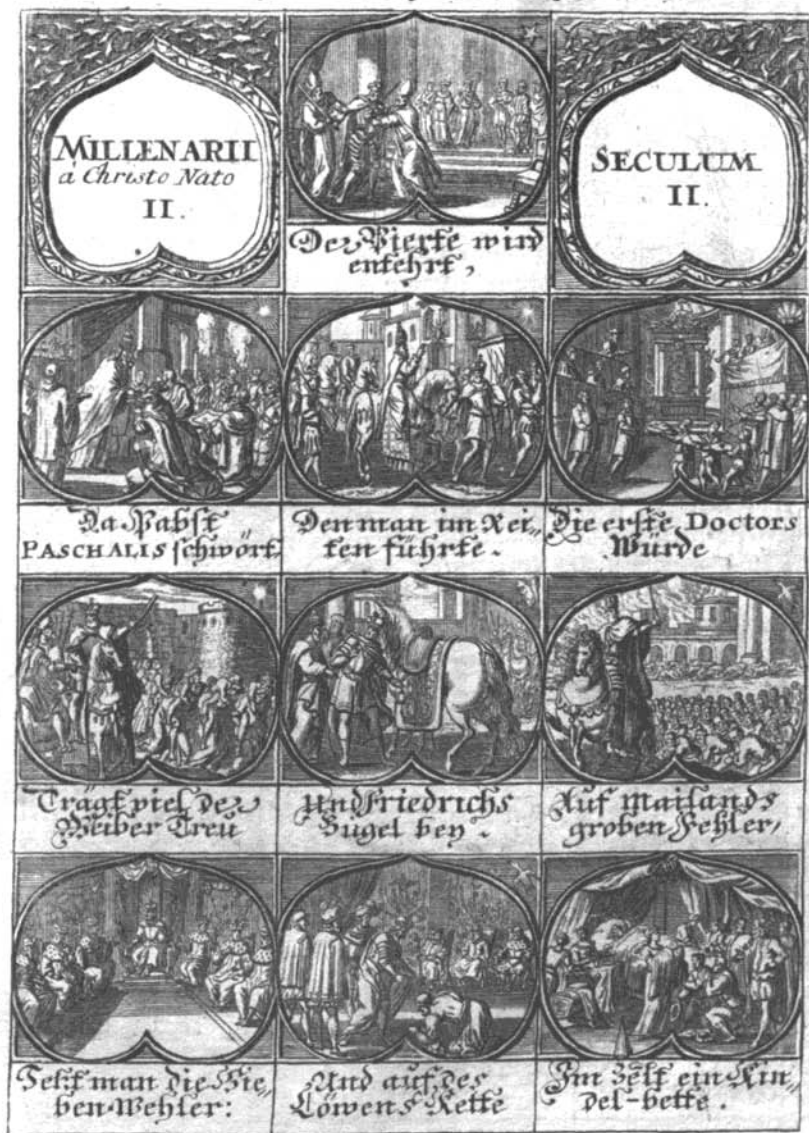 MILLENARII
à Christo Nato
II.
Der Vierte wird
entehrt,
SECULUM
II.
Da Pabst
PASCHALIS schwört.
Den man im Rei„
ten führte.
Die erste Doctors
Würde
Trägt viel der
Weiber Treu
Und Friedrichs
Bugel bey.
Auf Mailands
groben Fehler,
Setzt man die Sie„
ben Wehler:
Und auf des
Löwens Kette
Im Zelt ein Kin„
del-bette.